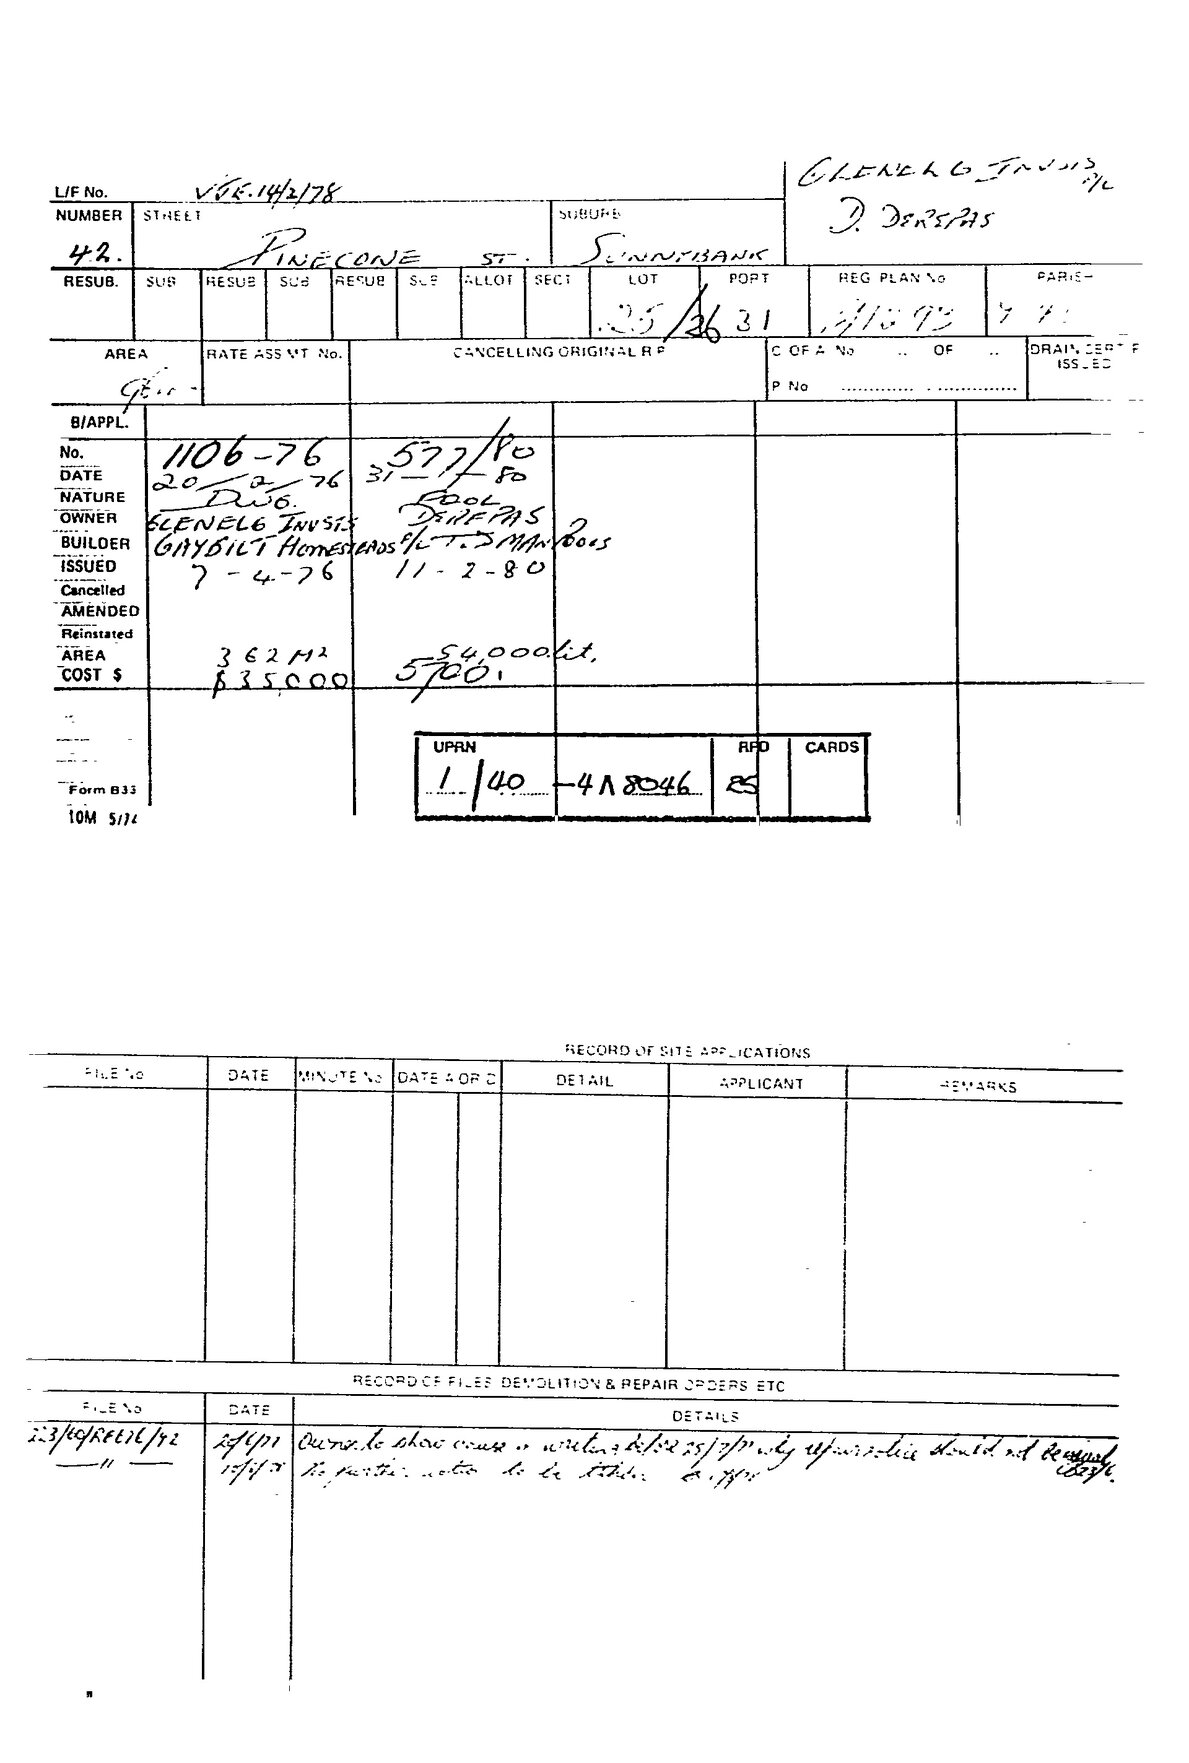 GLENELG INVSTS P/L
L/F No. VJE. 14/2/78
D. DEREPAS
NUMBER STREET SUBURB
42. PINECONE ST. SUNNYBANK
RESUB. SUB RESUB SUB RESUB SUB ALLOT SECT LOT PORT REG PLAN No PARISH
25/26 31
AREA RATE ASSMT. No. CANCELLING ORIGINAL R P C OF A No .. OF .. DRAIN CERTIF
ISSUED
P No
B/APPL.
No. 1106-76 577/80
DATE 20/2/76 31-1-80
NATURE DWG. POOL
OWNER GLENELG INVSTS DEREPAS
BUILDER GAYBILT HOMESTEADS P/L
ISSUED 7-4-76 11-2-80
Cancelled
AMENDED
Reinstated
AREA 362 M2 54,000 lit.
COST $ $35,000 5700.
UPRN RPD CARDS
Form B33
10M 5/74
RECORD OF SITE APPLICATIONS
FILE No DATE MINUTE No DATE A OR D DETAIL APPLICANT REMARKS
RECORD OF FILES DEMOLITION & REPAIR ORDERS ETC
FILE No DATE DETAILS
Owner to show cause in writing before why repair notice should not be issued
No further action to be taken